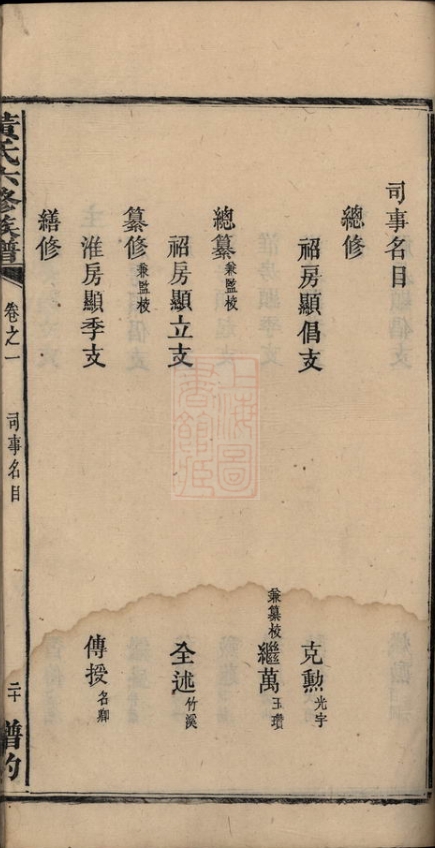 司事名目
總修
祒房顯倡支 克勲光宇
兼纂校繼萬玉瓚
總纂兼監校
祒房顯立支 全述竹溪
纂修兼監校
淮房顯季支 傳授名卿
繕修
黃氏六修族譜 卷之一 司事名目 二十 譜約
上海圖書館藏